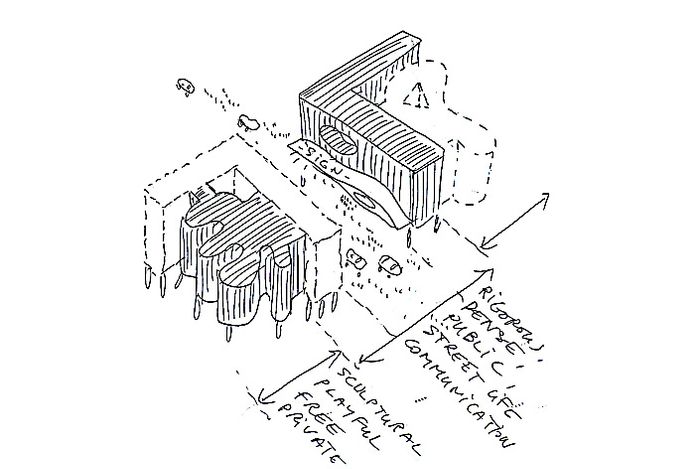 SIGN
RIGOROUS,
DENSE,
PUBLIC,
STREET LIFE
COMMUNICATION
SCULPTURAL
PLAYFUL
FREE
PRIVATE